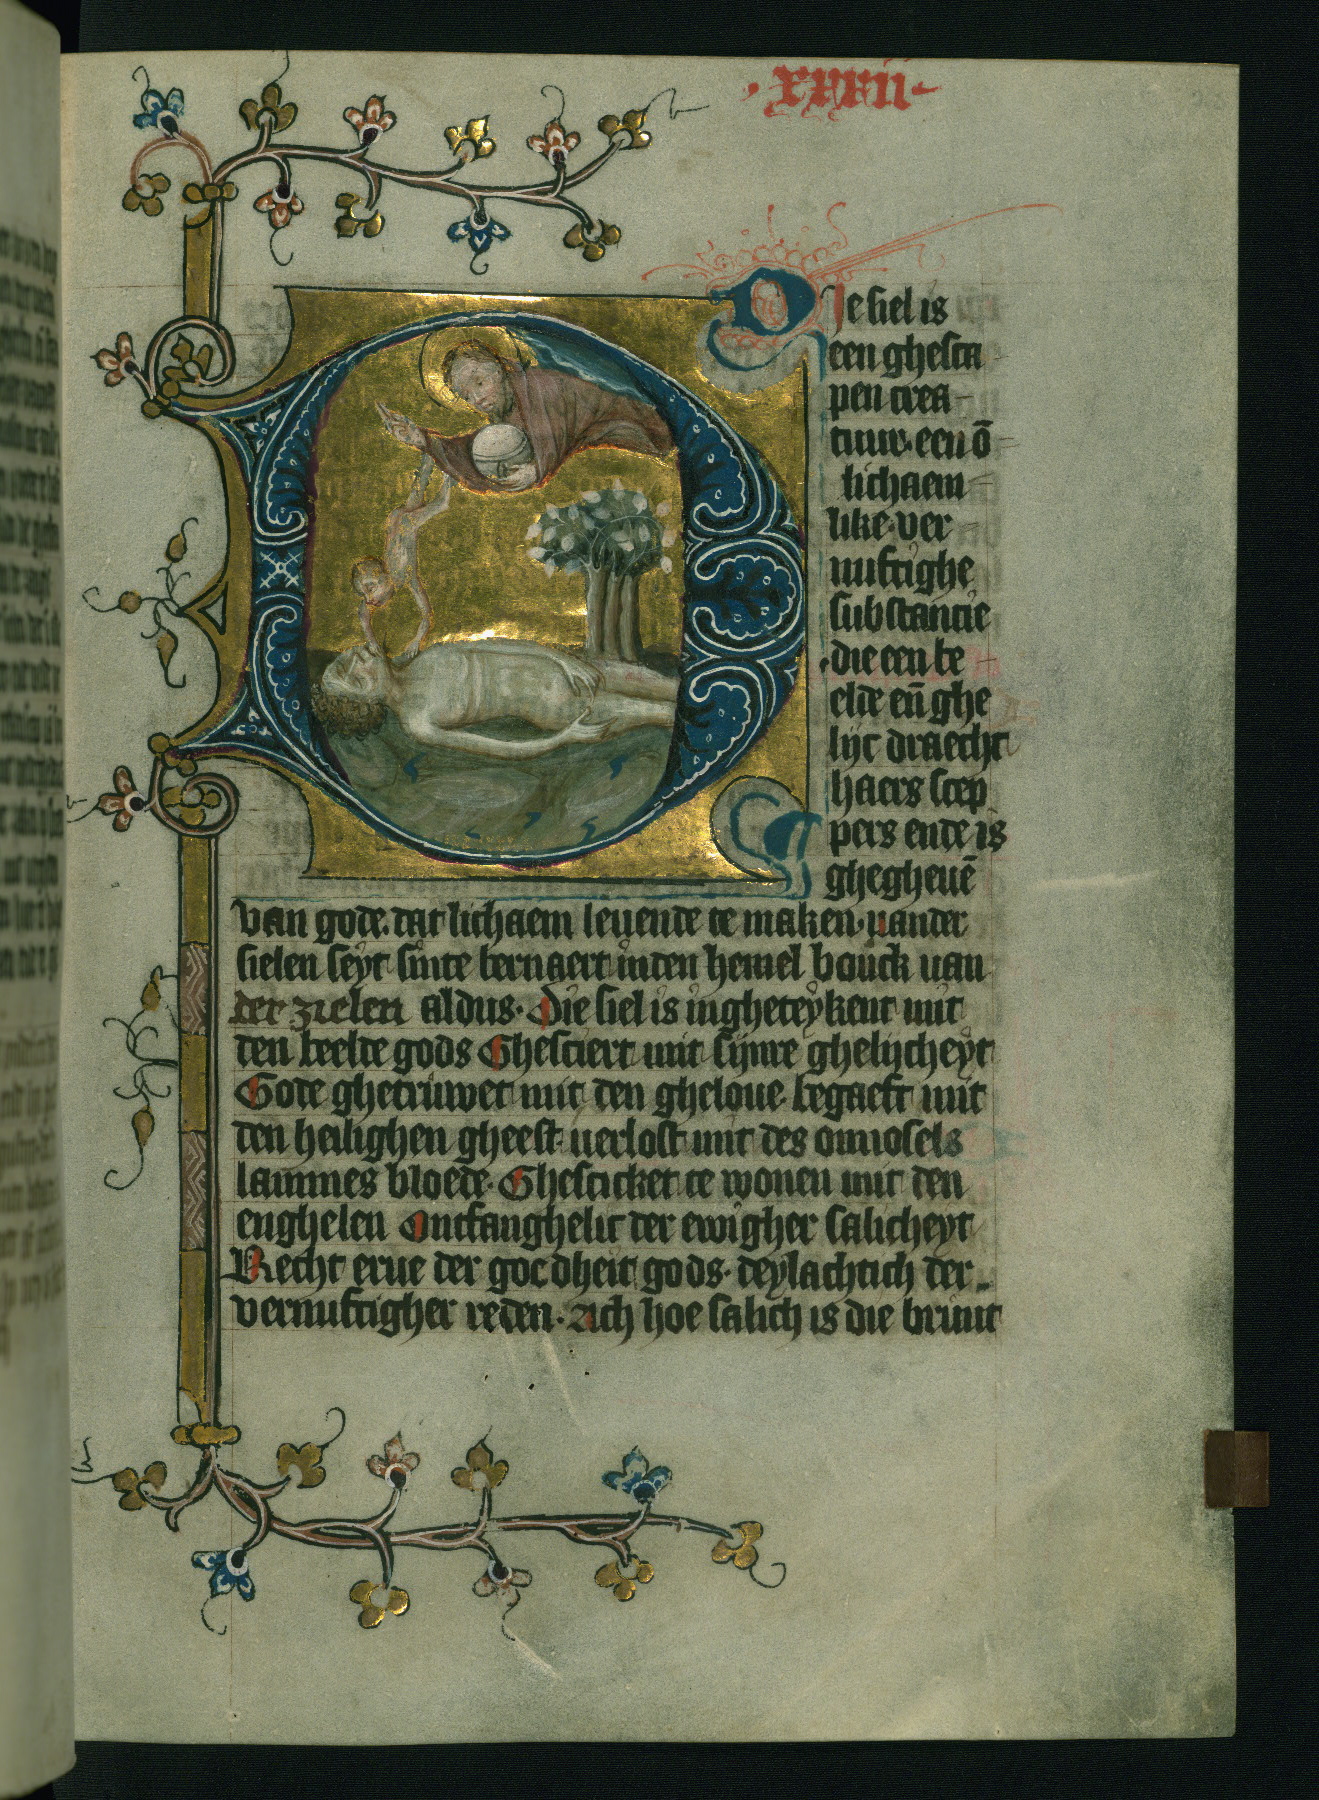 ·xxxii·
Die siel is
een ghesca
pen crea
tuur· een ō
lichaem
like· ver
nuftighe
substancie
·die een be
elde eñ ghe
lijc draecht
haers scep
pers ende is
ghegheuē
van gode· dat lichaem leuende te maken· vander
sielen seyt sinte bernaert inden hemel bouck van
der zielen aldus· Die siel is ingheteykent mit
den beelde gods Ghesciert mit sijnre ghelijcheyt
Gode ghetruwet mit den gheloue· begaeft mit
den heilighen gheest· verlost mit des onnosels
lammes bloede· Ghescicket te wonen mit den
enghelen Ontfanghelic der ewigher salicheyt
Recht erue der gocdheit gods· deylachtich der
vernuftigher reden· Ach hoe salich is die bruut